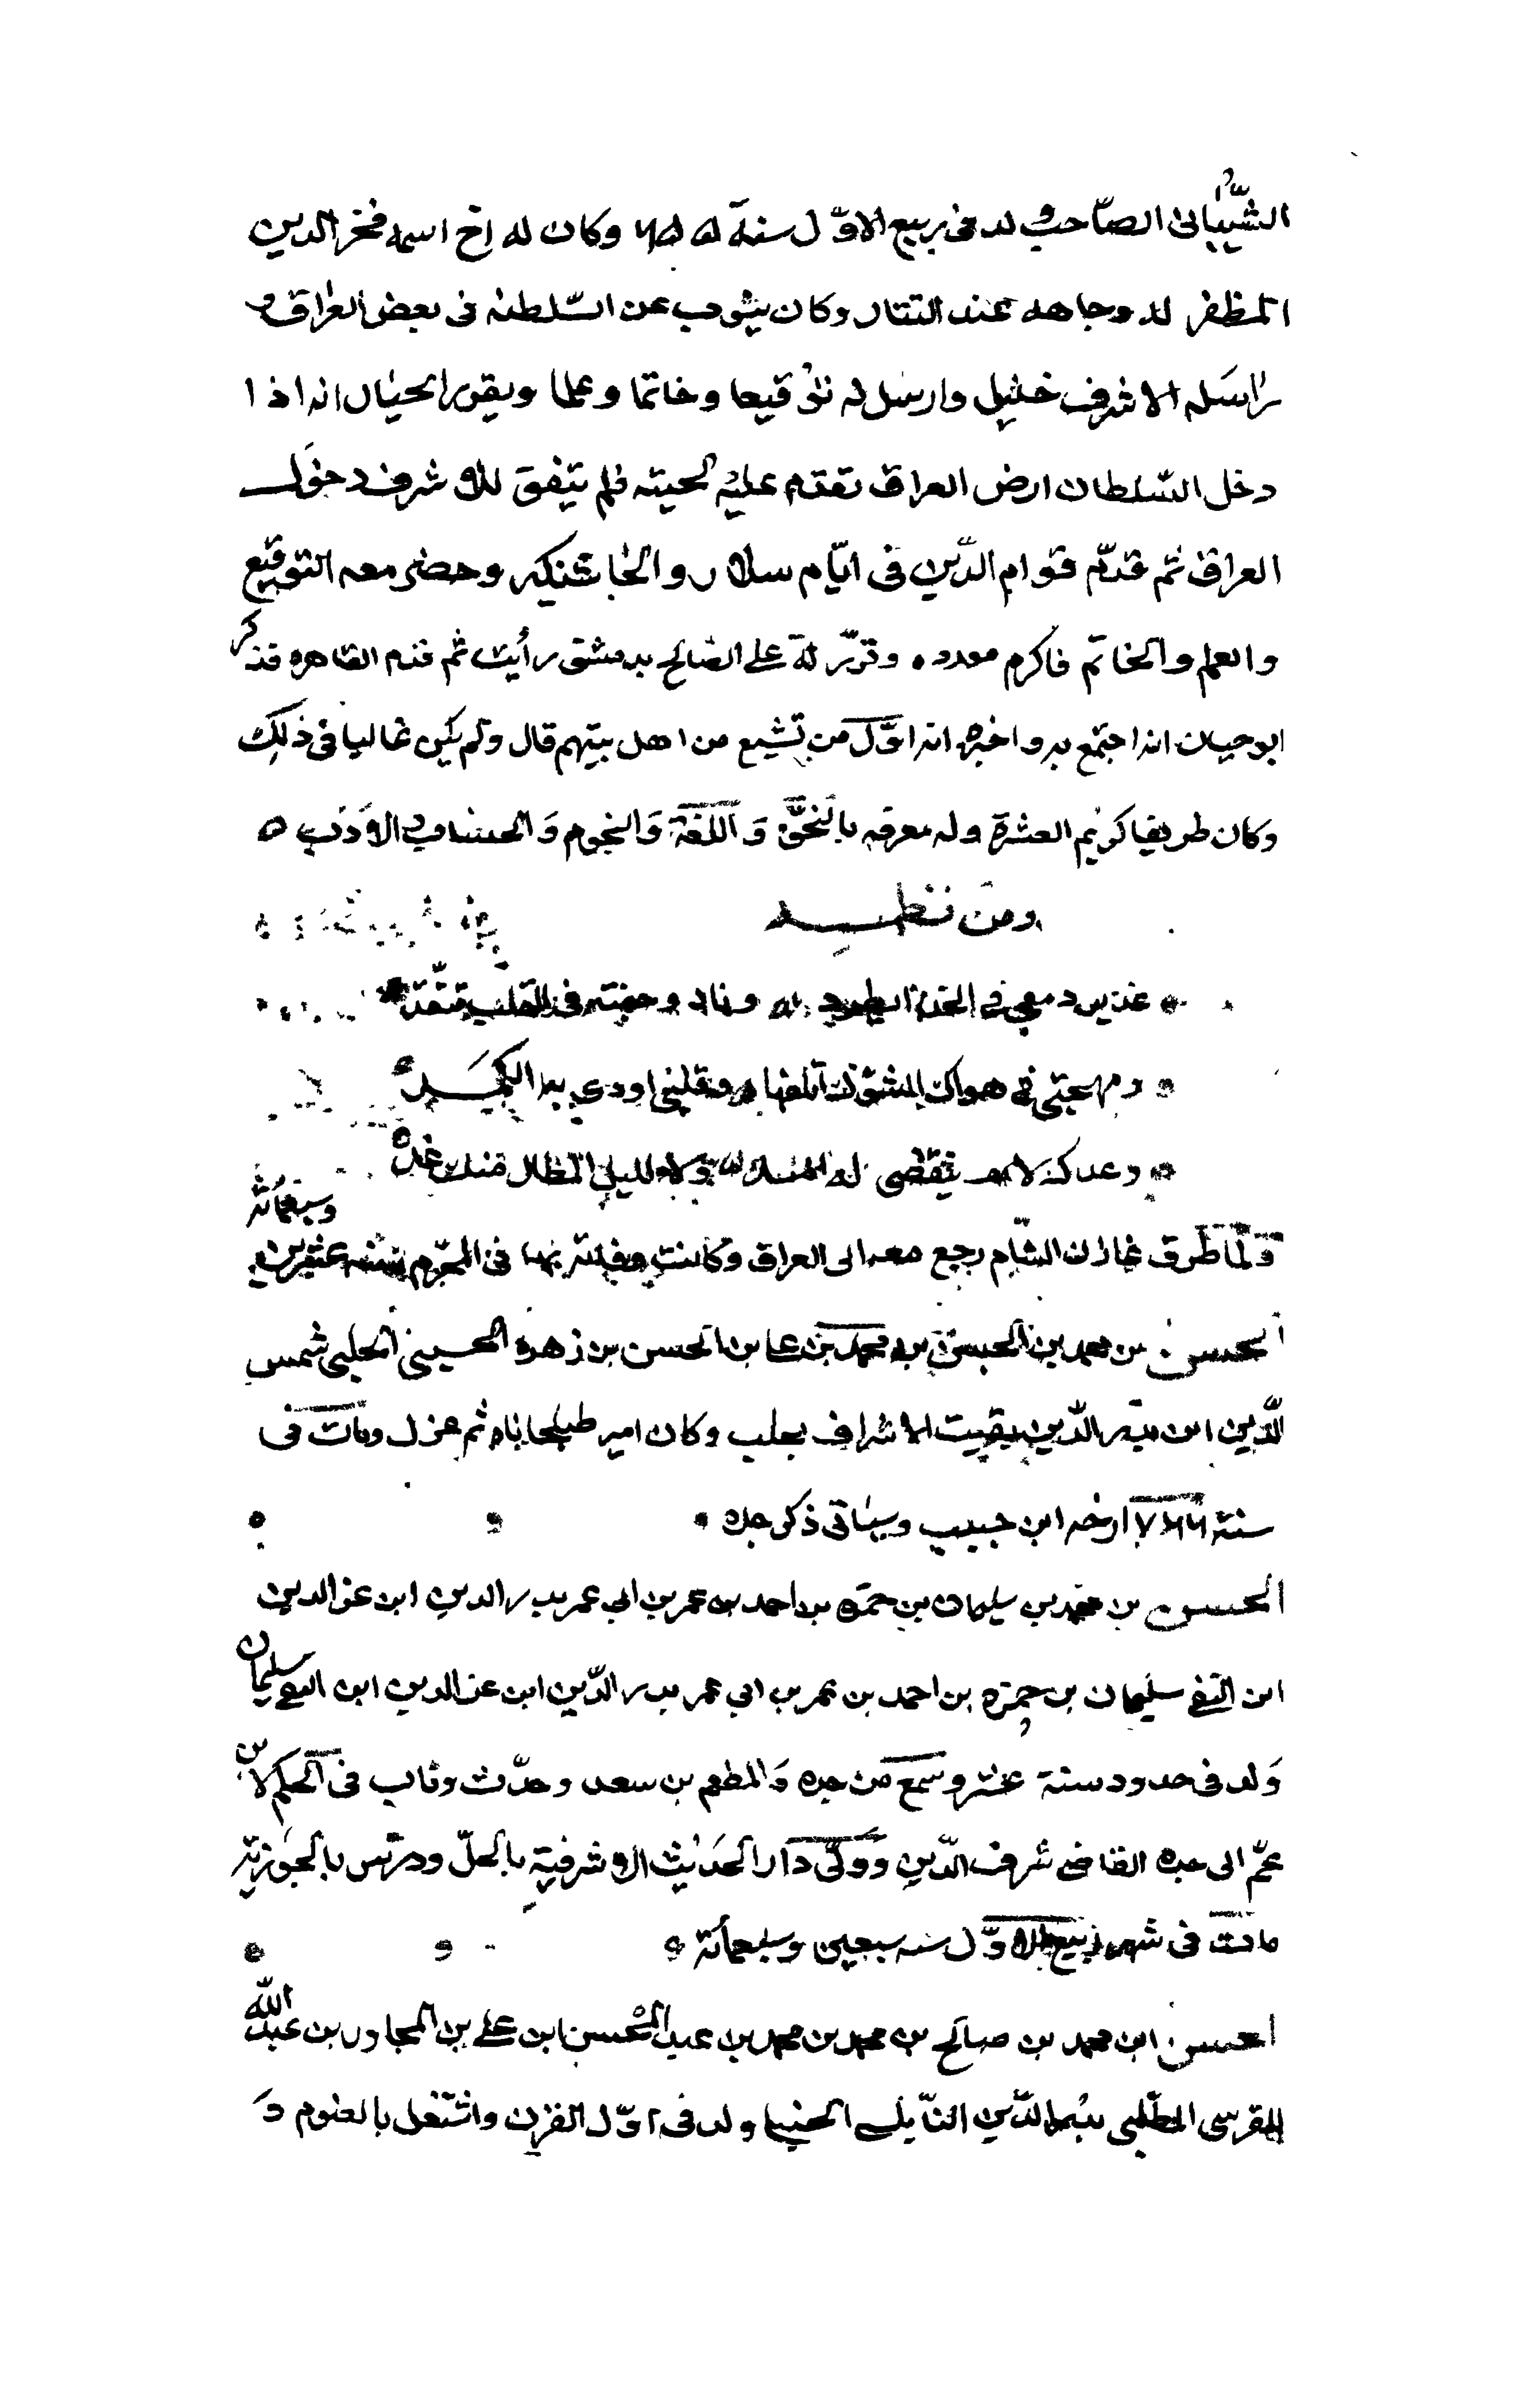 الشّيبانى الصّاحب ولد فى ربيع الاوّل سنة ٦٥٥ وكان له اخ اسمه فخر الدين
المظفر له وجاهه عند التتار وكان ينوب عن السّلطنه فى بعض العراق و
راسله الاشرف خليل وارسل له توقيعا وخاتما وعلما وتقرر الحال انه اذا
دخل السّلطان ارض العراق تقدم عليه لحيته فلم يتفق للاشرف دخول
العراق ثم قدم قوام الدّين فى ايّام سلار والجاشنكير وحضر معه التوقيع
والعلم والخاتم فاكرم مورده وقرّر له على الصالح بدمشق راتب ثم قدم القاهره فذكر
ابو حيان انه اجتمع به واخبره انه اوّل من تشيع من اهل بيتهم قال ولم يكن غاليا فى ذلك
وكان ظريفا كريم العشرة وله معرفه بالنحو وَاللغة وَالنجوم وَالحساب والادب ٥
ومن نظمه
غدير دمعى فى الخد يطرد ونار وجدى فى القلب تتقد
ومهجتى فى هواك اتلفها الشوق وقلبى اودى به الكمد
وعدك لا ينقضى له امد ولا لليل المطال منك غد
ولما طرق غازان الشام رجع معه الى العراق وكانت وفاته بها فى المحرّم سنة عشرين وسبعمائة
الحسن بن محمد بن الحسن بن محمد بن على بن الحسن بن زهرة الحسينى الحلبى شمس
الدّين ابن بدر الدّين نقيب الاشراف بحلب وكان امير طبلخاناه ثم عزل ومات فى
سنة ٧٦٦ ارخه ابن حبيب وسياتى ذكر جده
الحسن بن محمد بن سليمان بن حمزه بن احمد بن عمر بن ابى عمر بدر الدين ابن عز الدين
ابن التقى سليمان بن حمزه بن احمد بن عمر بن ابى عمر بدر الدّين ابن عز الدين ابن التقى سليمان
وَلد فى حدود سنة عشر وسمع من جده وَالمطعم بن سعد وحدّث وناب فى الحكم لابن
عمّ ابى جده القاضى شرف الدّين وَولى دار الحديث الاشرفية بالجبل ودرّس بالجوزية
مات فى شهر ربيع الاوّل سنه سبعين وسبعمائة
الحسن ابن محمد بن صالح بن محمد بن محمد بن عبد المحسن ابن على بن المجاور بن عبد الله
القرسى المطلبى بدر الدّين النابلسى الحنبلى ولد فى اوّل القرن واشتغل بالعلوم وَ